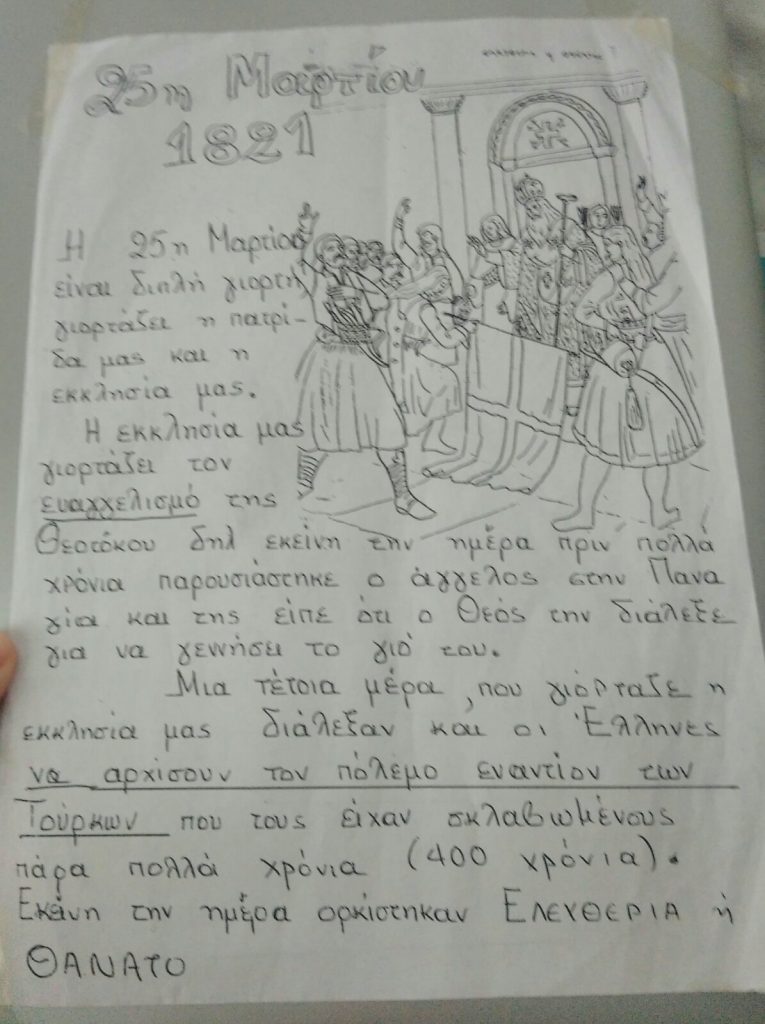 25η Μαρτίου
1821
Η 25η Μαρτίου
είναι διπλή γιορτή
γιορτάζει η πατρί-
δα μας και η
εκκλησία μας.
Η εκκλησία μας
γιορτάζει τον
ευαγγελισμό της
Θεοτόκου δηλ εκείνη την ημέρα πριν πολλά
χρόνια παρουσιάστηκε ο άγγελος στην Πανα
γία και της είπε ότι ο Θεός την διάλεξε
για να γεννήσει το γιό του.
Μια τέτοια μέρα, που γιόρταζε η
εκκλησία μας διάλεξαν και οι Έλληνες
να αρχίσουν τον πόλεμο εναντίον των
Τούρκων που τους είχαν σκλαβωμένους
πάρα πολλά χρόνια (400 χρόνια).
Εκείνη την ημέρα ορκίστηκαν ΕΛΕΥΘΕΡΙΑ ή
ΘΑΝΑΤΟ